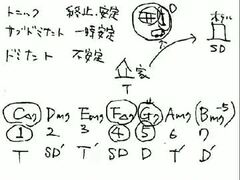 トニック 終止、安定
サブドミナント 一時安定
ドミナント 不安定
D
ホテル
SD
家
T
C△7 Dm7 Em7 F△7 G7 Am7 (Bm7-5)
1 2 3 4 5 6 7
T SD' T' SD D T' D'